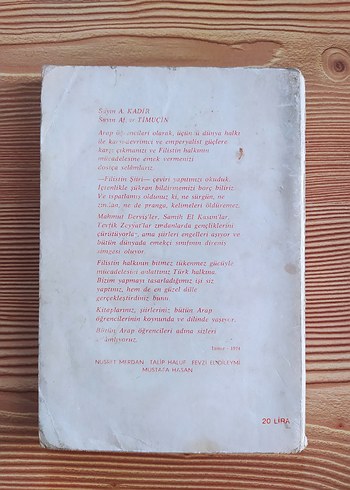 Sayın A. KADİR
Sayın A. TİMUÇİN
Arap öğrencileri olarak, üçüncü dünya halkı
ile ve emperyalist güçlere
karşı çıkmanızı ve Filistin halkının
mücadelesine emek vermenizi
dostça selâmlarız.
—Filistin Şiiri— çeviri yapıtınızı okuduk.
İçtenlikle şükran bildirmemizi borç biliriz.
Ve ispatlamış oldunuz ki, ne sürgün, ne
zindan, ne de pranga, kelimeleri öldüremez.
Mahmut Derviş'ler, Samih El Kasım'lar,
Tevfik Zeyyat'lar zındanlarda gençliklerini
çürütüyorlar, ama şiirleri engelleri aşıyor ve
bütün dünyada emekçi sınıfının direniş
simgesi oluyor.
Filistin halkının bitmez tükenmez gücüyle
mücadelesini anlattınız Türk halkına.
Bizim yapmayı tasarladığımız işi siz
yaptınız, hem de en güzel dille
gerçekleştirdiniz bunu.
Kitaplarınız, şiirleriniz bütün Arap
öğrencilerinin koynunda ve dilinde yaşıyor.
Bütün Arap öğrencileri adına sizleri
NUSRET MERDAN TALİP HALUF FEVZİ
MUSTAFA HASAN
20 LİRA